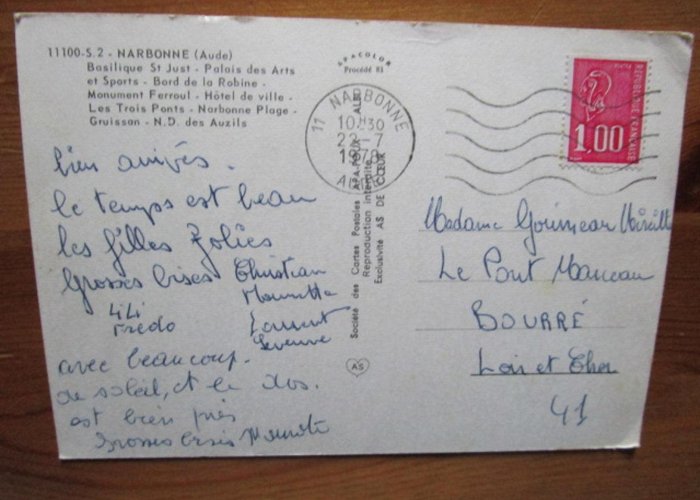 11100-S.2 - NARBONNE (Aude)
Basilique St Just - Palais des Arts
et Sports - Bord de la Robine -
Monument Ferroul - Hôtel de ville -
Les Trois Ponts - Narbonne Plage -
Gruissan - N.D. des Auzils
bien arrivés.
le temps est beau
les filles jolies
Grosses bises Christian
Lili
Fredo Laurent
avec beaucoup
de soleil, et le dos.
est bien pris
Grosses bises
APACOLOR
Procédé 83
Société des Cartes Postales APA-POUX - ALBI
Reproduction interdite
Exclusivité AS DE CŒUR
AS
11 NARBONNE
10H30
22-7
1976
AUDE
1,00
REPUBLIQUE FRANÇAISE
Madame Mireille
Le Pont
BOURRÉ
Loir et Cher
41